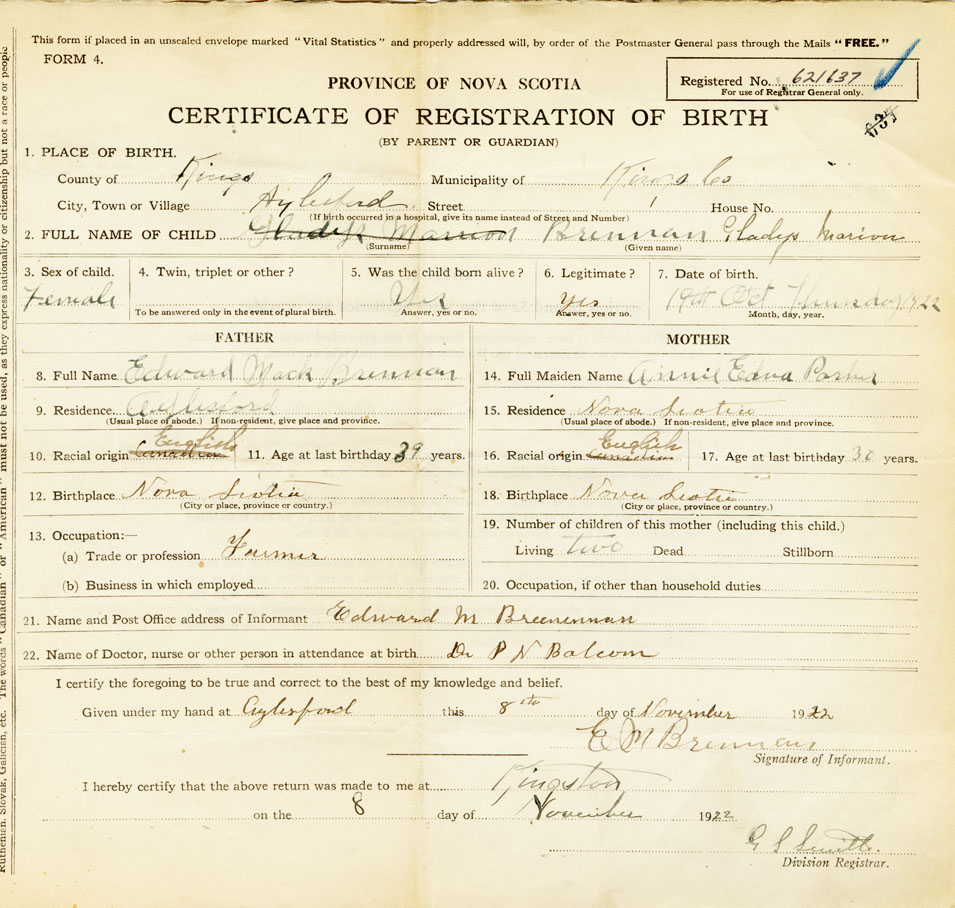 This form if placed in an unsealed envelope marked "Vital Statistics" and properly addressed will, by order of the Postmaster General pass through the Mails "FREE."
FORM 4.
Registered No. 621637
For use of Registrar General only.
637
PROVINCE OF NOVA SCOTIA
CERTIFICATE OF REGISTRATION OF BIRTH
(BY PARENT OR GUARDIAN)
1. PLACE OF BIRTH.
County of Kings Municipality of Kings Co
City, Town or Village Aylesford Street House No.
(If birth occurred in a hospital, give its name instead of Street and Number)
2. FULL NAME OF CHILD Gladys Brennan Gladys Marion
(Surname) (Given name)
3. Sex of child. 4. Twin, triplet or other? 5. Was the child born alive? 6. Legitimate? 7. Date of birth.
Female Yes Yes 19th Oct Thursday 1922
To be answered only in the event of plural birth. Answer, yes or no. Answer, yes or no. Month, day, year.
FATHER
8. Full Name Edward Mack Brennan
9. Residence Aylesford
(Usual place of abode.) If non-resident, give place and province.
English
10. Racial origin Canadian 11. Age at last birthday 39 years.
12. Birthplace Nova Scotia
(City or place, province or country.)
13. Occupation:—
(a) Trade or profession Farmer
(b) Business in which employed
MOTHER
14. Full Maiden Name Annie Edna Parker
15. Residence Nova Scotia
(Usual place of abode.) If non-resident, give place and province.
English
16. Racial origin Canadian 17. Age at last birthday 30 years.
18. Birthplace Nova Scotia
(City or place, province or country.)
19. Number of children of this mother (including this child.)
Living two Dead Stillborn
20. Occupation, if other than household duties
21. Name and Post Office address of Informant Edward M
22. Name of Doctor, nurse or other person in attendance at birth Dr P N Balcom
I certify the foregoing to be true and correct to the best of my knowledge and belief.
Given under my hand at Aylesford this 8th day of November 1922
E M Brennan
Signature of Informant.
I hereby certify that the above return was made to me at Kingston
on the 8 day of November 1922
G S Smith
Division Registrar.
Ruthenian, Slovak, Galician, etc. The words "Canadian" or "American" must not be used, as they express nationality or citizenship but not a race or people